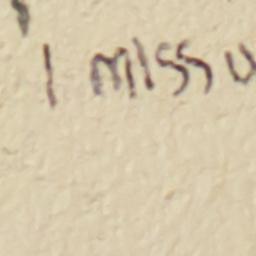 I miss u